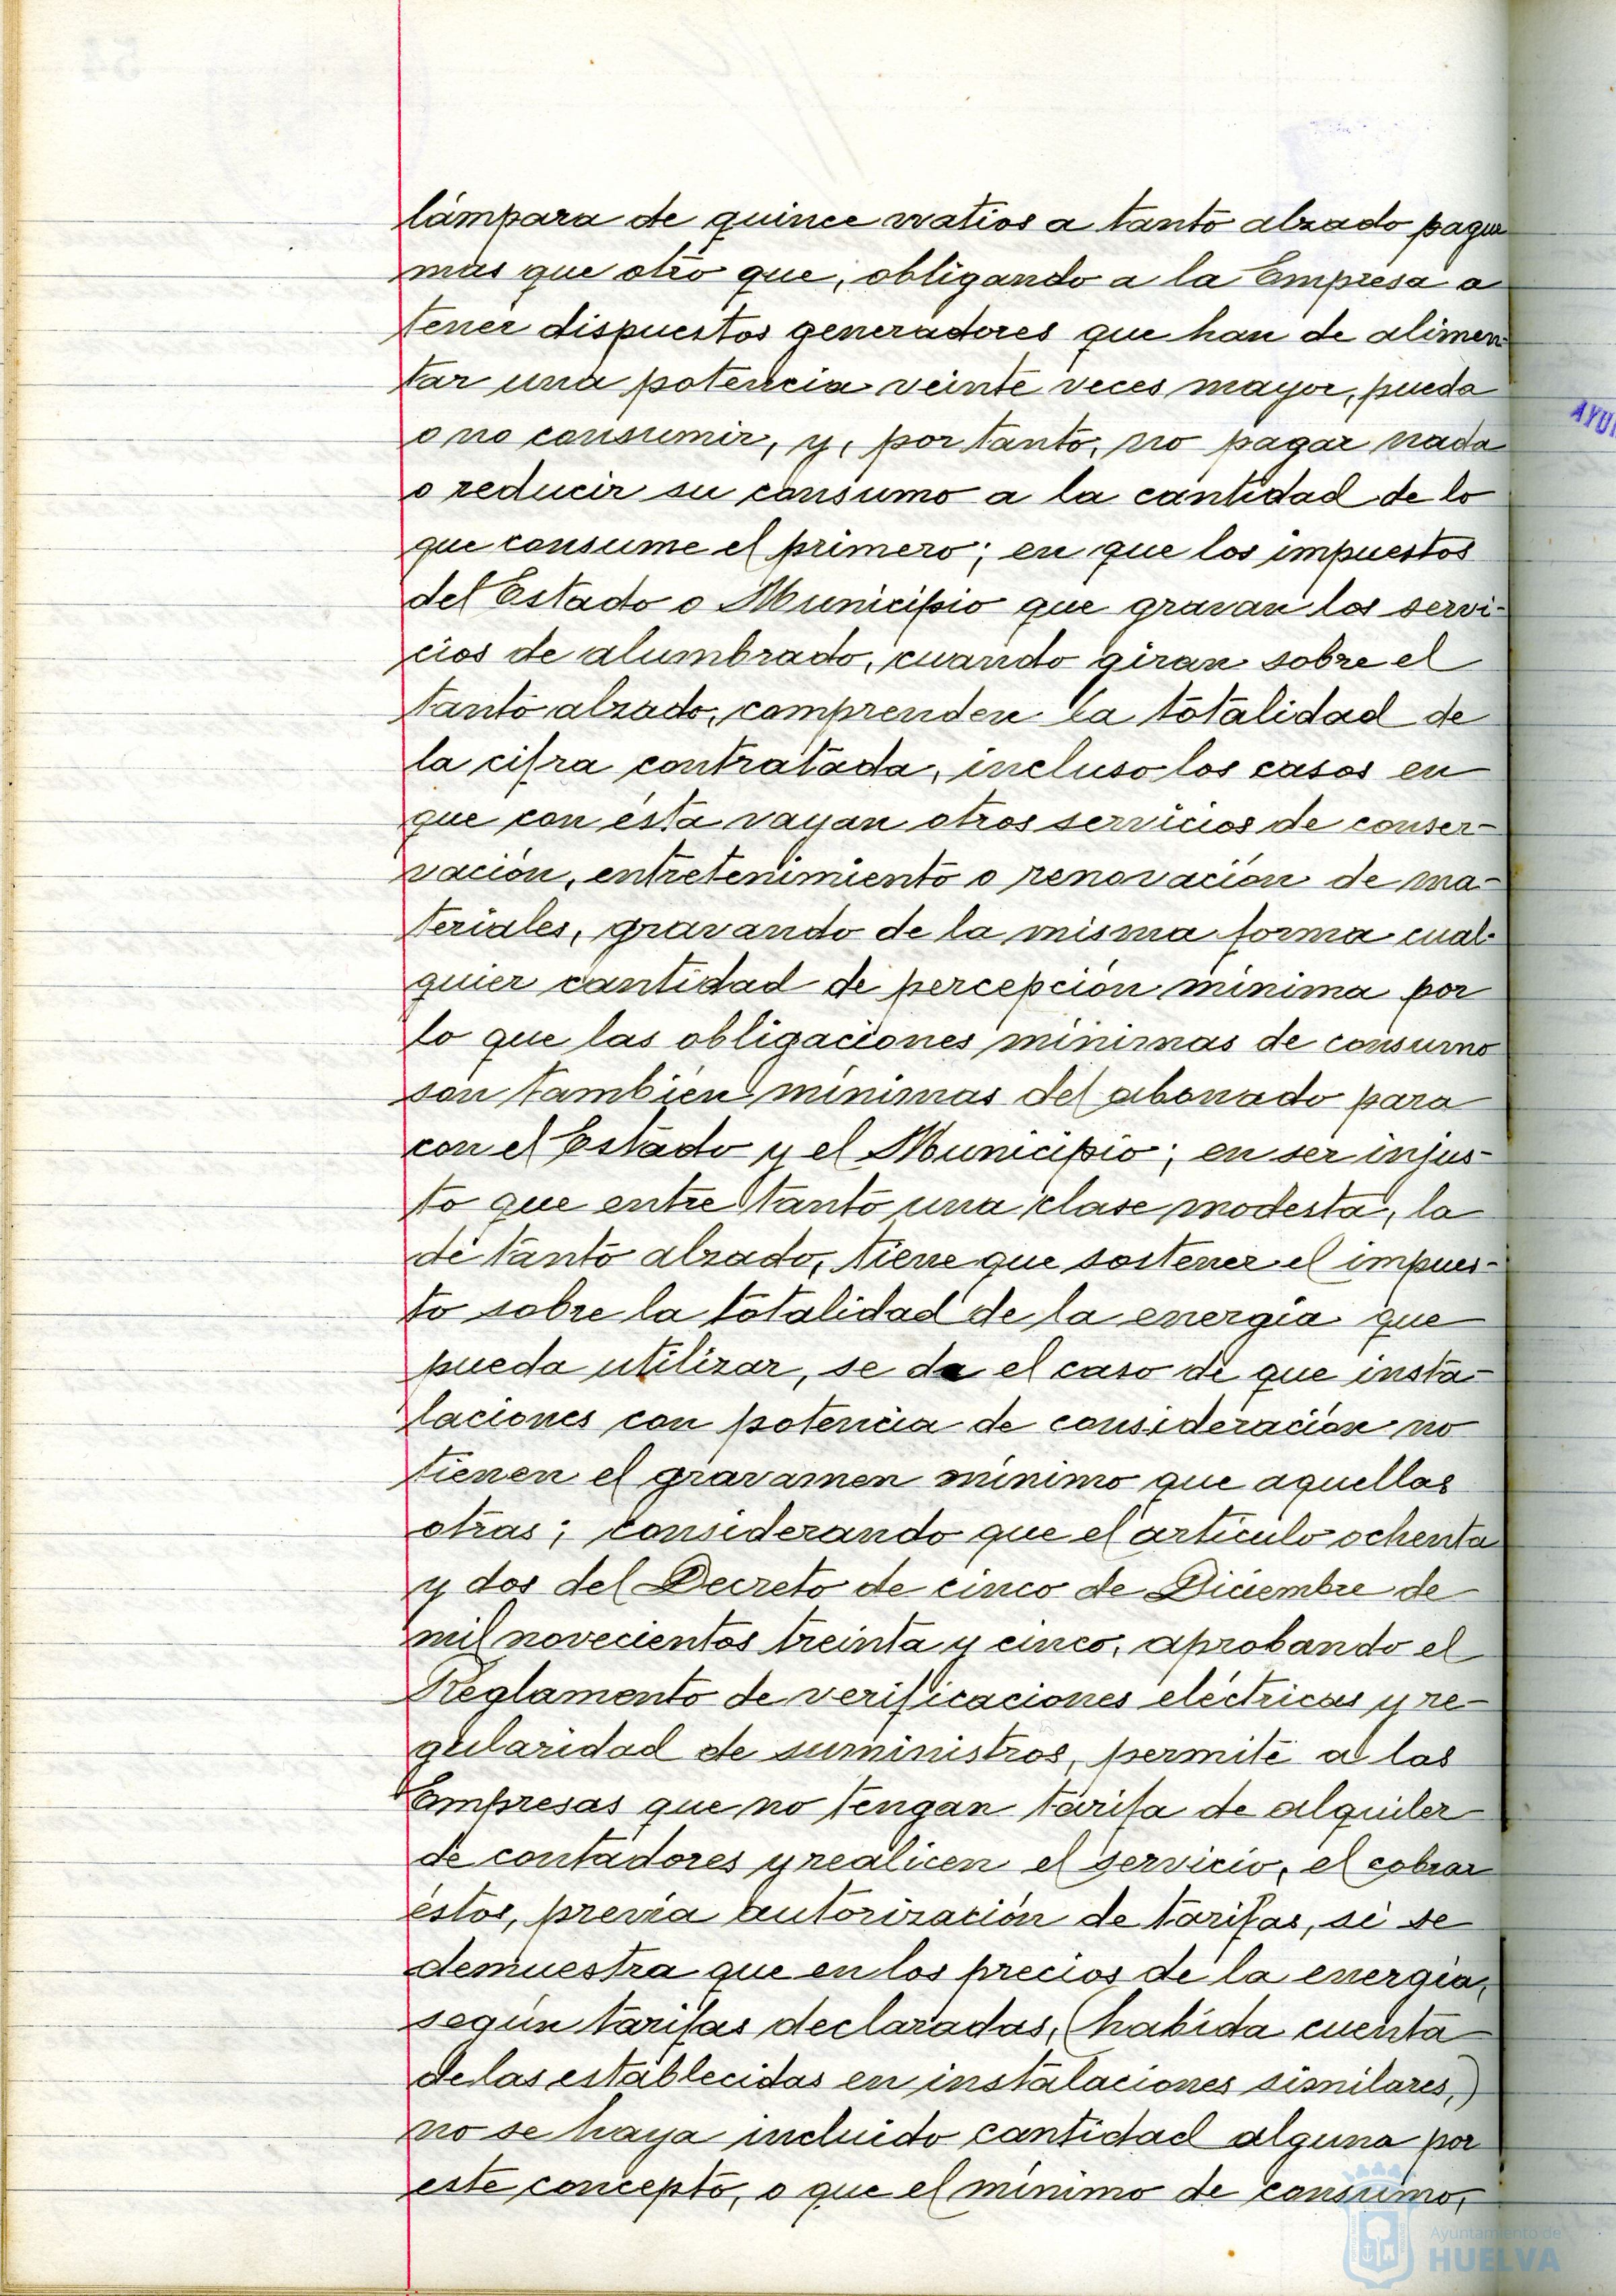 lámpara de quince watios a tanto alzado pague
más que otro que, obligando a la Empresa a
tener dispuestos generadores que han de alimen-
tar una potencia veinte veces mayor, pueda
o no consumir, y, por tanto, no pagar nada
o reducir su consumo a la cantidad de lo
que consume el primero; en que los impuestos
del Estado o Municipio que gravan los servi-
cios de alumbrado, cuando giran sobre el
tanto alzado, comprenden la totalidad de
la cifra contratada, incluso los casos en
que con ésta vayan otros servicios de conser-
vación, entretenimiento o renovación de ma-
teriales, gravando de la misma forma cual-
quier cantidad de percepción mínima por
lo que las obligaciones mínimas de consumo
son también mínimas del abonado para
con el Estado y el Municipio; en ser injus-
to que entre tanto una clase modesta, la
de tanto alzado, tiene que sostener el impues-
to sobre la totalidad de la energía que
pueda utilizar, se da el caso de que insta-
laciones con potencia de consideración no
tienen el gravamen mínimo que aquellas
otras; considerando que el artículo ochenta
y dos del Decreto de cinco de Diciembre de
mil novecientos treinta y cinco, aprobando el
Reglamento de verificaciones eléctricas y re-
gularidad de suministros, permite a las
Empresas que no tengan tarifa de alquiler
de contadores y realicen el servicio, el cobrar
éstos, previa autorización de tarifas, si se
demuestra que en los precios de la energía,
según tarifas declaradas, (habida cuenta
de las establecidas en instalaciones similares,)
no se haya incluido cantidad alguna por
este concepto, o que el mínimo de consumo,
AYU
Ayuntamiento de
HUELVA